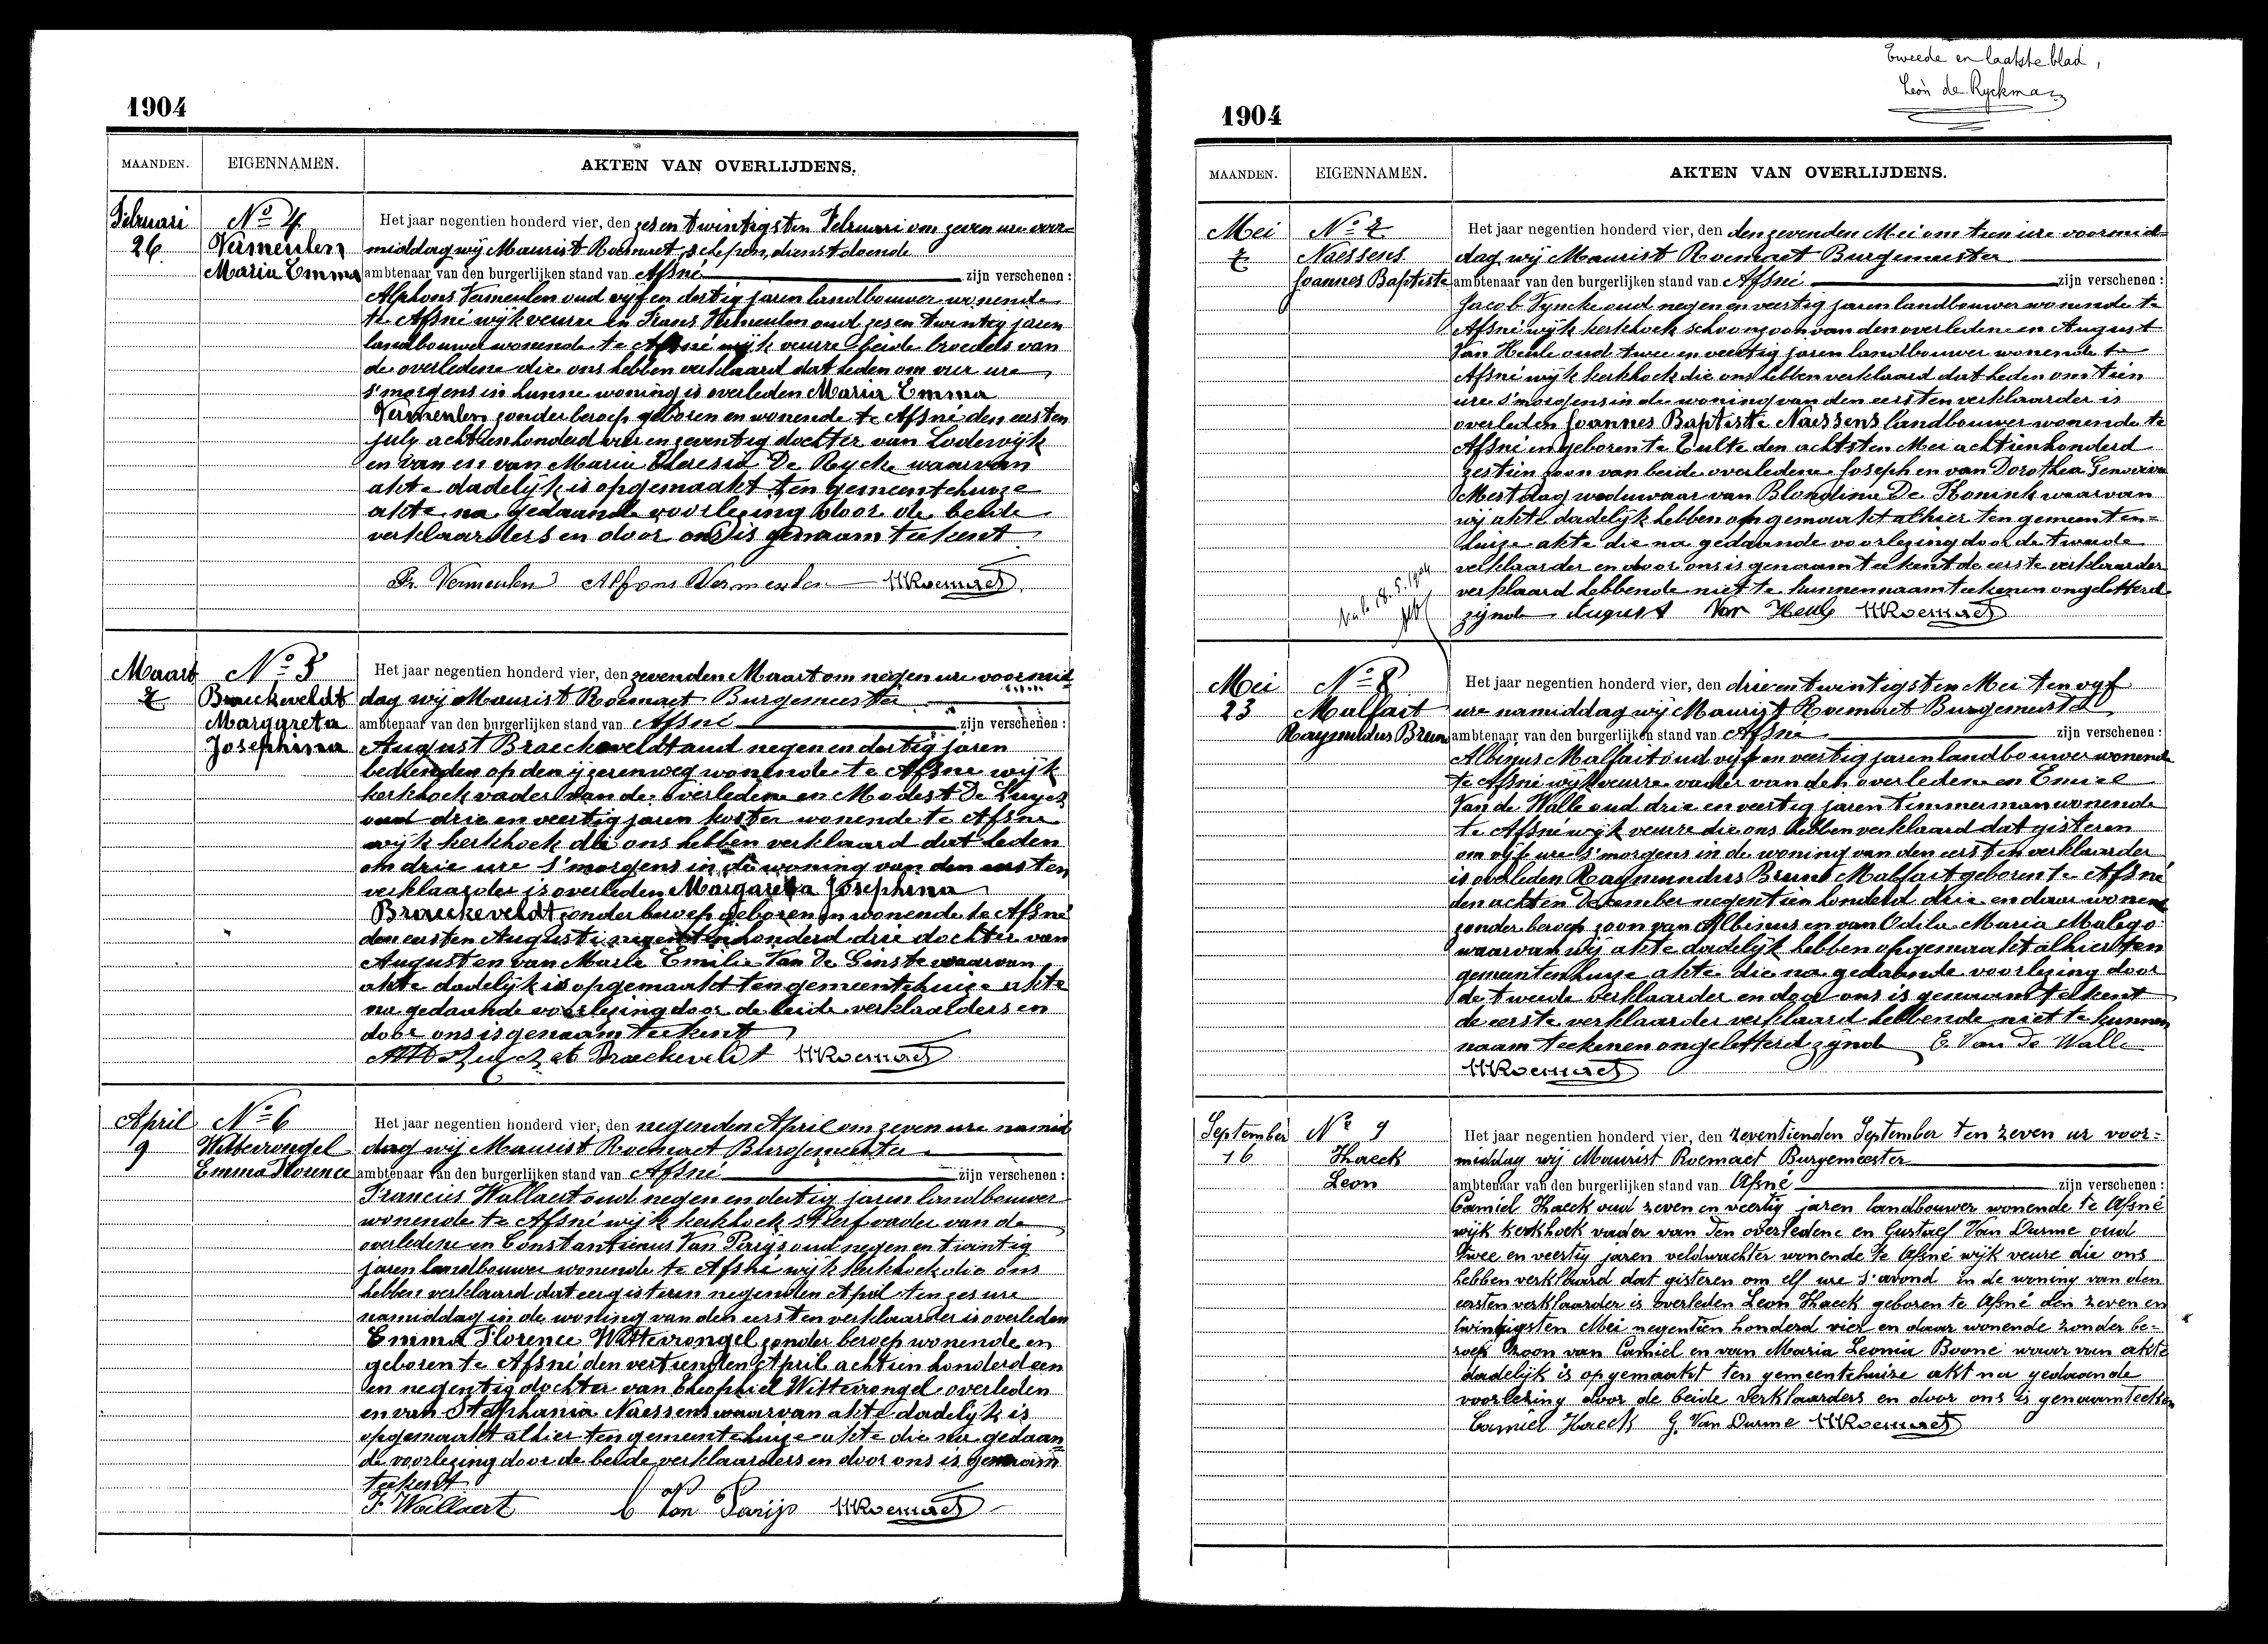 1904
MAANDEN. EIGENNAMEN. AKTEN VAN OVERLIJDENS.
Februari
26
No 4
Vermeulen
Maria Emma
Het jaar negentien honderd vier, den zes en twintigsten Februari om zeven ure voor=
middag wij Maurist Roemaet, schepen, dienstdoende
ambtenaar van den burgerlijken stand van Afsné zijn verschenen :
Alphons Vermeulen oud vijf en dertig jaren landbouwer wonende
te Afsné wijk veurre en Frans Vermeulen oud zes en twintig jaren
landbouwer wonende te Afsné wijk veurre beide broeders van
de overledene die ons hebben verklaard dat heden om vier ure
s'morgens in hunne woning is overleden Maria Emma
Vermeulen zonder beroep geboren en wonende te Afsné den eersten
july achttienhonderd vier en zeventig dochter van Lodewijk
en van en van Maria Theresia De Rycke waarvan
akte dadelijk is opgemaakt ten gemeentehuize
akte na gedaande voorlezing door de beide
verklaarders en door ons is genaamteekent
Fr. Vermeulen Alfons Vermeulen MRoemaet
Maart
7
No 5
Braeckeveldt
Margareta
Josephina
Het jaar negentien honderd vier, den zevenden Maart om negen ure voormid
dag wij Maurist Roemaet Burgemeester
ambtenaar van den burgerlijken stand van Afsné zijn verschenen :
August Braeckeveldt oud negen en dertig jaren
bedienden op den ijzerenweg wonende te Afsne wijk
kerkhoek vader van de overledene en Modest De Luyck
oud drie en veertig jaren koster wonende te Afsne
wijk kerkhoek die ons hebben verklaard dat heden
om drie ure s'morgens in de woning van den eersten
verklaarder is overleden Margareta Josephina
Braeckeveldt zonder beroep geboren en wonende te Afsné
den eersten Augusti negentienhonderd drie dochter van
August en van Marie Emilie Van De Ginste waarvan
akte dadelijk is opgemaakt ten gemeentehuize akte
na gedaande voorlezing door de beide verklaarders en
door ons is genaamteekent
A Braeckeveldt MRoemaet
April
9
No 6
Wittevrongel
Emma Florence
Het jaar negentien honderd vier, den negenden April om zeven ure namid
dag wij Maurist Roemaet Burgemeester
ambtenaar van den burgerlijken stand van Afsné zijn verschenen :
Francies Wallaert oud negen en dertig jaren landbouwer
wonende te Afsné wijk kerkhoek stiefvader van de
overledene en Constantienus Van Parijs oud negen en twintig
jaren landbouwer wonende te Afsné wijk kerkhoek die ons
hebben verklaard dat eergisteren negenden April ten zes ure
namiddag in de woning van den eersten verklaarder is overleden
Emma Florence Wittevrongel zonder beroep wonende en
geboren te Afsné den veertienden April achtien honderd een
en negentig dochter van Theophiel Wittevrongel overleden
en van Stephania Naessens waarvan akte dadelijk is
opgemaakt alhier ten gemeentehuize akte die na gedaan
de voorlezing door de beide verklaarders en door ons is genaam
teekent
F. Wallaert C Van Parijs MRoemaet
Tweede en laatste blad,
Léon de Ryckman
1904
MAANDEN. EIGENNAMEN. AKTEN VAN OVERLIJDENS.
Mei
7
No 7
Naessens
Joannes Baptiste
Het jaar negentien honderd vier, den den zevenden Mei om tien ure voormid=
dag wij Maurist Roemaet Burgemeester
ambtenaar van den burgerlijken stand van Afsné zijn verschenen :
Jacob Vyncke oud negen en veertig jaren landbouwer wonende te
Afsné wijk kerkhoek schoonzoon van den overledene en August
Van Heule oud twee en veertig jaren landbouwer wonende te
Afsné wijk kerkhoek die ons hebben verklaard dat heden om tien
ure s'morgens in de woning van den eersten verklaarder is
overleden Joannes Baptiste Naessens landbouwer wonende te
Afsné en geboren te Zulte den achtsten Mei achtienhonderd
zestien zoon van beide overledene Joseph en van Dorothea Genoviva
Mestdag weduwaar van Blondina De Konink waarvan
wij akte dadelijk hebben opgemaakt alhier ten gemeenten=
huize akte die na gedaande voorlezing door de tweede
verklaarder en door ons is genaamteekent de eerste verklaarder
verklaard hebbende niet te kunnen naamteekenen ongeletterd
zijnde August Van Heule MRoemaet
18.5.1904
Mei
23
No 8
Malfait
Raymundus Bruno
Het jaar negentien honderd vier, den drie en twintigsten Mei ten vijf
ure namiddag wij Maurist Roemaet Burgemeester
ambtenaar van den burgerlijken stand van Afsné zijn verschenen :
Albinus Malfait oud vijf en veertig jaren landbouwer wonende
te Afsné wijk veurre vader van den overledene en Emiel
Van de Walle oud drie en veertig jaren timmerman wonende
te Afsné wijk veurre die ons hebben verklaard dat gisteren
om vijf ure s'morgens in de woning van den eersten verklaarder
is overleden Raymundus Bruno Malfait geboren te Afsné
den achten December negentien honderd drie en daar wonende
zonder beroep zoon van Albinus en van Odila Maria Malego
waarvan wij akte dadelijk hebben opgemaakt alhier ten
gemeentenhuize akte die na gedaande voorlezing door
de tweede verklaarder en door ons is genaamteekent
de eerste verklaarder verklaard hebbende niet te kunnen
naamteekenen ongeletterd zijnde E. Van De Walle
MRoemaet
September
16
No 9
Haeck
Leon
Het jaar negentien honderd vier, den zeventienden September ten zeven ur voor=
middag wij Maurist Roemaet Burgemeester
ambtenaar van den burgerlijken stand van Afsné zijn verschenen :
Camiel Haeck oud zeven en veertig jaren landbouwer wonende te Afsné
wijk kerkhoek vader van den overledene en Gustaef Van Durme oud
twee en veertig jaren veldwachter wonende te Afsné wijk veure die ons
hebben verklaard dat gisteren om elf ure s'avond in de woning van den
eersten verklaarder is overleden Leon Haeck geboren te Afsné den zeven en
twintigsten Mei negentien honderd vier en daar wonende zonder be-
roep zoon van Camiel en van Maria Leonia Boone waar van akte
dadelijk is opgemaakt ten gemeentehuize akt na gedaande
voorlezing door de beide verklaarders en door ons is genaamteeken
Camiel Haeck G. Van Durme MRoemaet